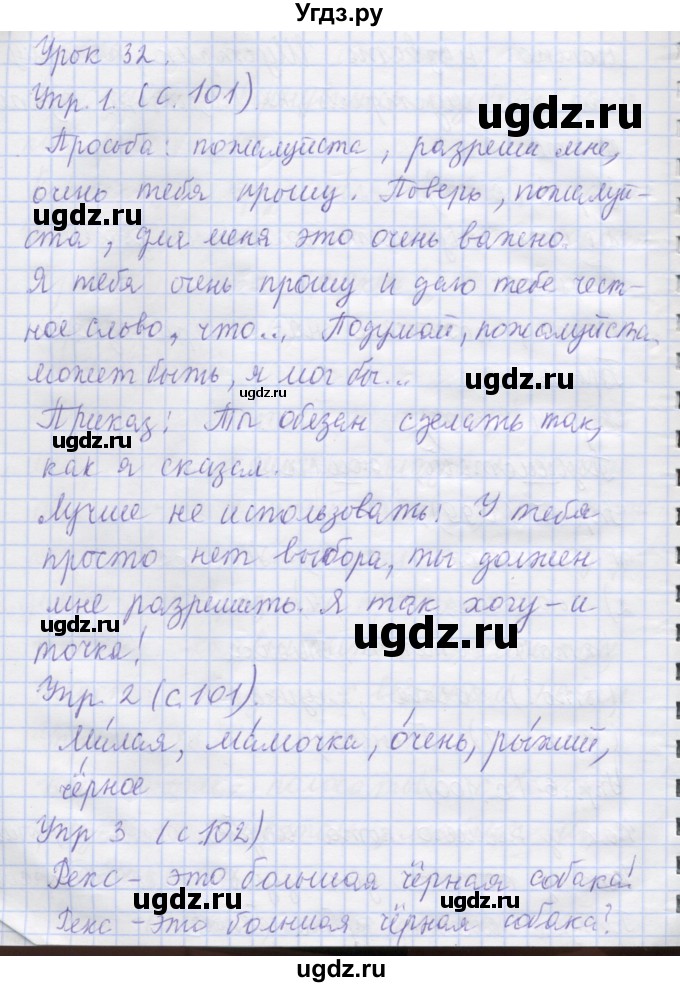 Угдз.ру
Урок 32.
Упр. 1. (с. 101).
ugdz.ru
Просьба: пожалуйста, разреши мне,
очень тебя прошу. Поверь, пожалуй-
ugdz.ru
ста, для меня это очень важно.
Я тебя очень прошу и даю тебе чест-
ное слово, что... Подумай, пожалуйста,
может быть, я мог бы...
ugdz.ru
ugdz.ru
Приказ: Ты обязан сделать так,
ugdz.ru
как я сказал.
Лучше не использовать: У тебя
просто нет выбора, ты должен
мне разрешить. Я так хочу - и
ugdz.ru
ugdz.ru
точка!
Упр. 2 (с. 101).
Ми́лая, ма́мочка, о́чень, ры́жий,
чёрное
ugdz.ru
Упр 3 (с 102)
Рекс - это большая чёрная собака!
ugdz.ru
ugdz.ru
Рекс - это болншая чёрная собака?
ugdz.ru